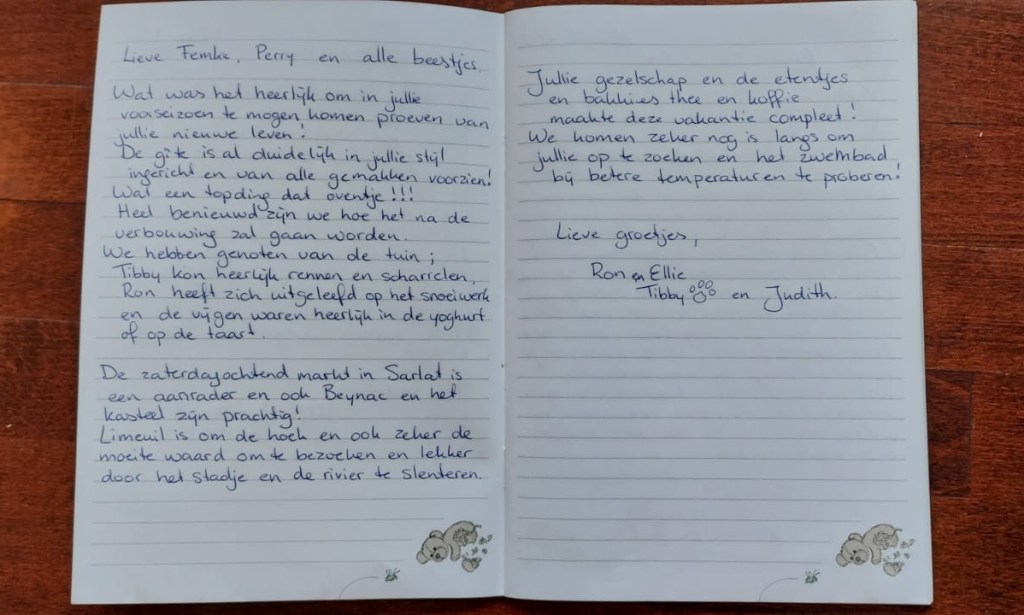 Lieve Femke, Perry en alle beestjes.
Wat was het heerlijk om in jullie
voorseizoen te mogen komen proeven van
jullie nieuwe leven!
De gîte is al duidelijk in jullie stijl
ingericht en van alle gemakken voorzien!
Wat een topding dat oventje!!!
Heel benieuwd zijn we hoe het na de
verbouwing zal gaan worden.
We hebben genoten van de tuin;
Tibby kon heerlijk rennen en scharrelen,
Ron heeft zich uitgeleefd op het snoeiwerk
en de vijgen waren heerlijk in de yoghurt
of op de taart.
De zaterdagochtend markt in Sarlat is
een aanrader en ook Beynac en het
kasteel zijn prachtig!
Limeuil is om de hoek en ook zeker de
moeite waard om te bezoeken en lekker
door het stadje en de rivier te slenteren.
Jullie gezelschap en de etentjes
en bakkies thee en koffie
maakte deze vakantie compleet!
We komen zeker nog is langs om
jullie op te zoeken en het zwembad
bij betere temperaturen te proberen!
Lieve groetjes,
Ron en Ellie
Tibby en Judith.